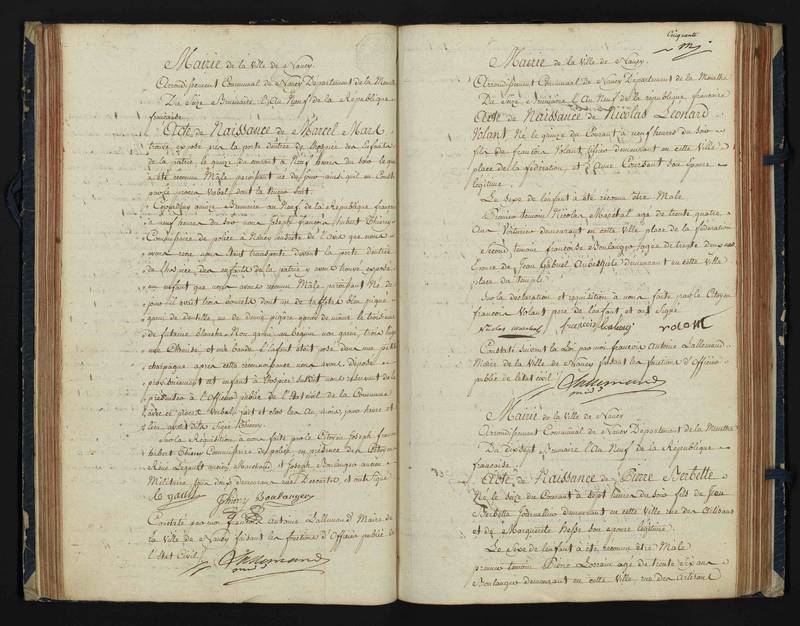 Mairie de la Ville de Nancy.
Arrondissement Communal de Nancy Département de la Meurthe
Du Seize Brumaire l'An Neuf de la République
française.
Acte de Naissance de Marcel Mars
trouvé exposé à la porte d'entrée de l'hospice des Enfants
de la patrie le quinze du courant à Neuf heures du soir le quel
a été reconnu Mâle paroissant né de jour ainsi qu'il en Conste
par le procès Verbal dont la teneur suit.
Cejourdhuy quinze Brumaire an Neuf de la République française
à neuf heures du soir nous Joseph françois hubert Thiery
Commissaire de police à Nancy instruit de l'avis que nous
avons reçu nous étant transporté devant la porte d'entrée
de l'hospice des enfants de la patrie y avons trouvé exposé
un enfant que nous avons reconnu Mâle paroissant Né de
jour il avoit trois bonnets dont un de taffetas bleu piqué
garni de dentelle, un de demie piqué garni de même le troisieme
de futaine blanche Non garni, un beguin non garni, trois langes
une Chemise, et une bande l'enfant étoit posé dans une petite
charpagne après cette reconnoissance nous avons déposé
provisoirement cet enfant à l'hospice susdit nous reservant de le
produire à l'Officier public de l'état civil de la Commune
de ce procès Verbal fait et clos les an mois, jour heure et
lieu avant dits Signé Thiery.
Sur la Réquisition à nous faite par le Citoyen Joseph françois
hubert Thiery Commissaire de police, en présence des Citoyens
Réné Legault ancien et Joseph Boulanger ancien
Militaire, tous deux demeurans rue et ont Signé
le gault Thiery Boulanger
Constaté par moi françois Antoine Lallemand Maire de
la Ville de Nancy faisant les fonctions d'Officier public de
l'état Civil.
Lallemand
Cinquante
Mairie de la Ville de Nancy.
Arrondissement Communal de Nancy Département de la Meurthe
Du Seize Brumaire l'An Neuf de la République française
Acte de Naissance de Nicolas Léonard
Volant Né le quinze du Courant à neuf heures du soir
fils de françois Volant, demeurant en cette Ville
place de la fédération, et d'Anne Coursant son Epouse
légitime.
Le sexe de l'enfant a été reconnu être Male
Premier temoin Nicolas Marchal agé de trente quatre
ans Voiturier demeurant en cette Ville place de la fédération
Second temoin françoise Boulanger agée de trente deux ans
Epouse de Jean Gabriel demeurant en cette Ville
place du temple.
Sur la déclaration et réquisition à nous faite par le Citoyen
françois Volant père de l'enfant, et ont Signé
Nicolas marchal
Constaté suivant la Loi par moi françois Antoine Lallemand
Maire de la Ville de Nancy faisant les fonctions d'Officier
public de l'état civil.
Lallemand
Mairie de la Ville de Nancy
Arrondissement Communal de Nancy Département de la Meurthe
Du dix Sept Brumaire l'An Neuf de la République
française.
Acte de Naissance de Pierre Berbette
Né le seize du Courant à Sept heures du soir fils de Jean
Berbette Journalier demeurant en cette Ville rue des Artisans
et de Marguerite Hesse son epouse légitime.
Le Sexe de l'enfant a été reconnu être Male
premier temoin Pierre Lorrain agé de trente ans
Boulanger demeurant en cette Ville, rue des Artisans